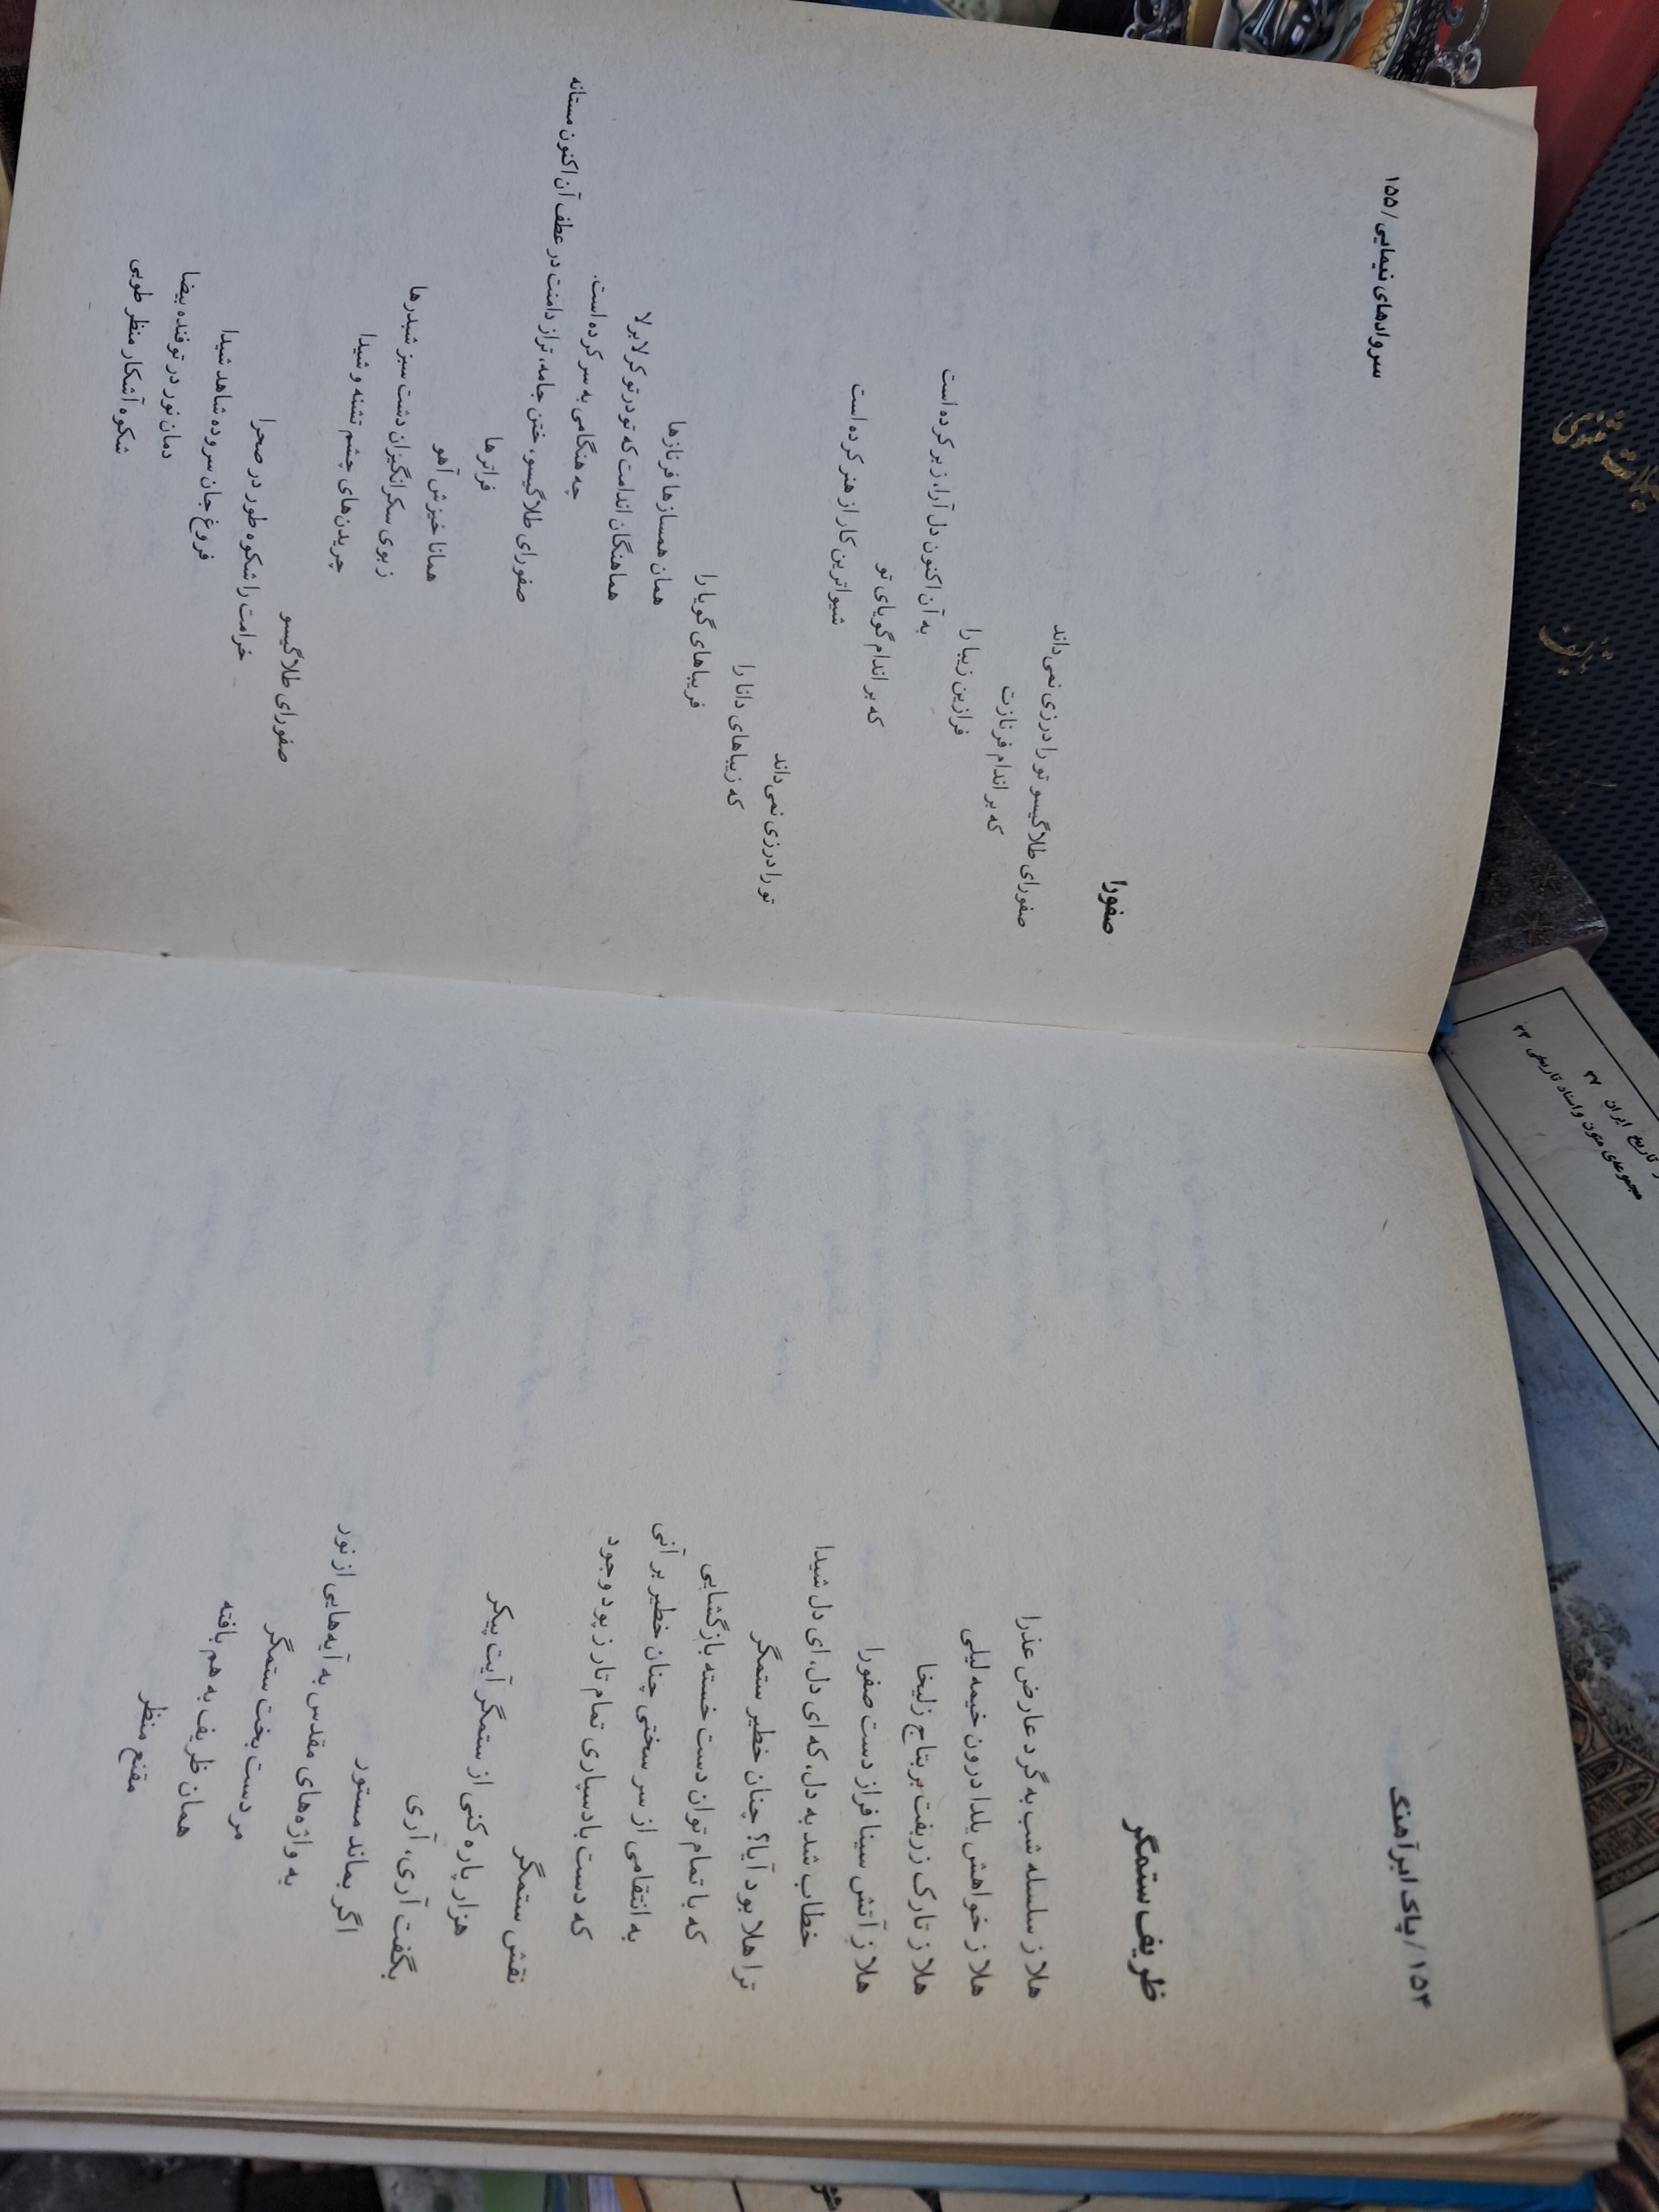 ۱۵۴ / پاک ابرآهنگ
ظریف ستمگر
هلا ز سلسله شب به گرد عارض عذرا
هلا ز خواهش یلدا درون خیمه لیلی
هلا ز تارک زربفت بر بتاج زلیخا
هلا ز آتش سینا فراز دست صفورا
خطاب شد به دل، که ای دل، ای دل شیدا
ترا هلا بود آیا؟ چنان خطیر ستمگر
که با تمام توان دست خسته بازگشایی
به انتقامی از سر سختی چنان خطیر بر آنی
که دست یادسپاری تمام تار ز پود وجود
نقش ستمگر
هزار پاره کنی از ستمگر آیت پیکر
بگفت آری، آری
اگر بماند مستور
به واژه‌های مقدس به آیه‌هایی از نور
مر دست بخت ستمگر
همان ظریف به هم بافته
مقنع منظر
سروادهای نیمایی / ۱۵۵
صفورا
صفورای طلاگیسو تو را درزی نمی‌داند
که بر اندام فرنازت
فرازین زیبا را
به آن اکنون دل آرا، زبر کرده است
که بر اندام گویای تو
شیواترین کار از هنر کرده است
تو را درزی نمی‌داند
که زیباهای دانا را
فریباهای گویا را
همان همسازها فرنازها
هماهنگان اندامت که تو در تو کر لابرلا
چه هنگامی به سر کرده است.
صفورای طلاگیسو، ختن جامه، تراز دامنت در عطف آن اکنون مستانه
فراترها
همانا خیزش آهو
ز بوی سکرانگیزان دشت سبز شبدرها
چریدن‌های چشم تشنه و شیدا
صفورای طلاگیسو
خرامت را شکوه طور در صحرا
فروغ جان سروده شاهد شیدا
دمان نور در توفنده بیضا
شکوه آشکار منظر طوبی
تألیف
تاریخ ایران ۳۷
مجموعه‌ی متون و اسناد تاریخی ۲۳